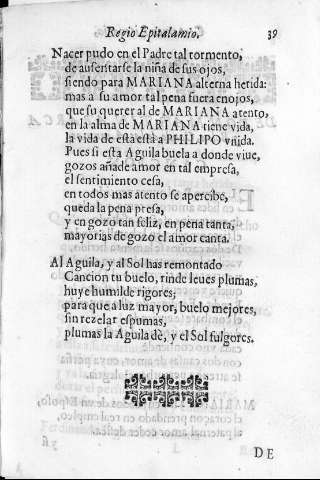 Regio Epitalamio. 39
Nacer pudo en el Padre tal tormento,
de ausentarse la niña de sus ojos,
siendo para MARIANA alterna herida:
mas a su amor tal pena fuera enojos,
que su querer al de MARIANA atento,
en la alma de MARIANA tiene vida,
la vida de esta està a PHILIPO vnida.
Pues si esta Aguila buela a donde viue,
gozos añade amor en tal empresa,
el sentimiento cesa,
en todos mas atento se apercibe,
queda la pena presa,
y en gozo tan feliz, en pena tanta,
mayorias de gozo el amor canta.
Al Aguila, y al Sol has remontado
Cancion tu buelo, rinde leues plumas,
huye humilde rigores;
para que a luz mayor, buelo mejores,
sin rezelar espumas,
plumas la Aguila dè, y el Sol fulgores.
DE